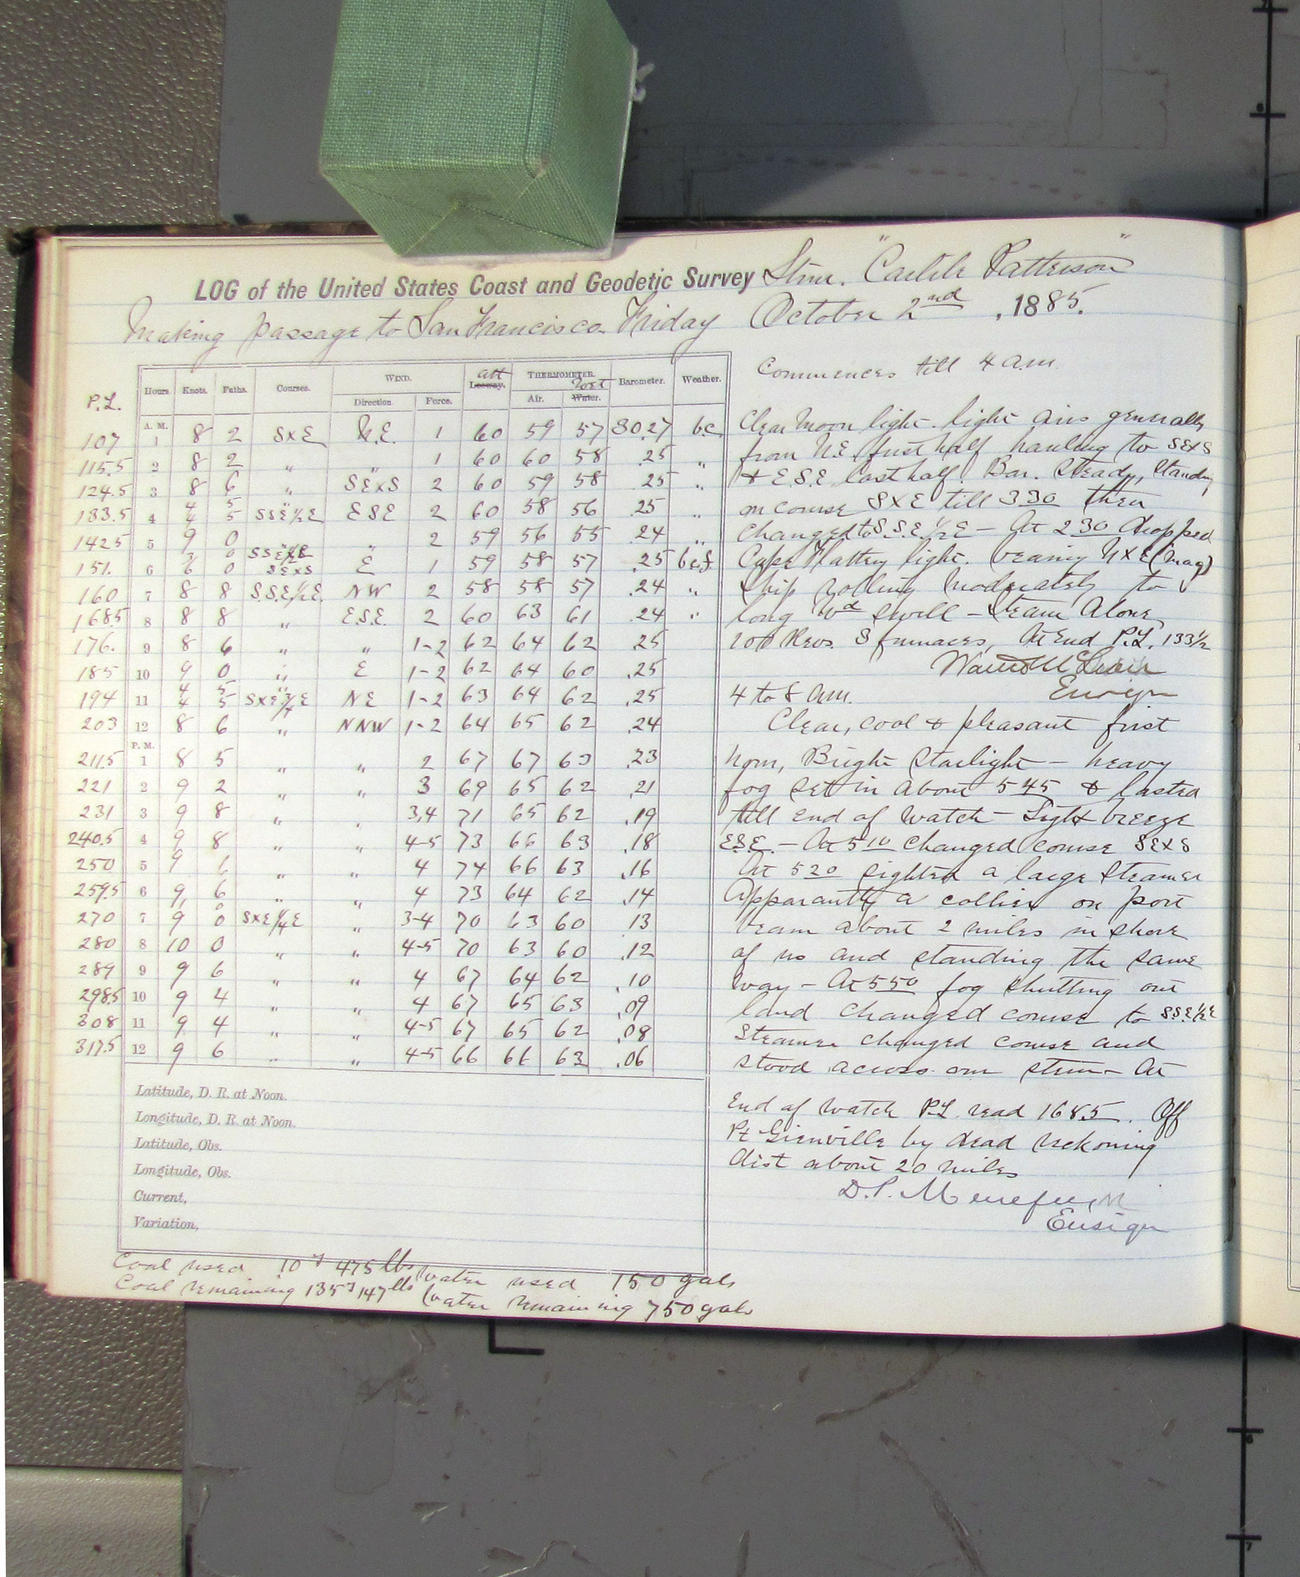 LOG of the United States Coast and Geodetic Survey Stmr. "Carlile Patterson"
Making passage to San Francisco Friday October 2nd, 1885.
P.L. Hours. Knots. Faths. Courses. WIND. Direction. Force. Leeway. att THERMOMETER. Air. Water. Wet Barometer. Weather.
A. M.
107 1 8 2 SxE N.E. 1 60 59 57 30.27 b.c.
115.5 2 8 2 " " 1 60 60 58 .25 "
124.5 3 8 6 " SExS 2 60 59 58 .25 "
133.5 4 4 5 4 5 SSE½E ESE 2 60 58 56 .25 "
142.5 5 9 0 " " 2 59 56 55 .24 "
151. 6 3 0 6 0 SSE½E SExS E 1 59 58 57 .25 b.c.f.
160 7 8 8 S.S.E.½E. NW 2 58 58 57 .24 "
168.5 8 8 8 " E.S.E. 2 60 63 61 .24 "
176. 9 8 6 " " 1-2 62 64 62 .25
185 10 9 0 " E 1-2 62 64 60 .25
194 11 4 5 4 5 SxE¾E NE 1-2 63 64 62 .25
203 12 8 6 " NNW 1-2 64 65 62 .24
P. M.
211.5 1 8 5 " " 2 67 67 63 .23
221 2 9 2 " " 3 69 65 62 .21
231 3 9 8 " " 3,4 71 65 62 .19
240.5 4 9 8 " " 4-5 73 66 63 .18
250 5 9 6 " " 4 74 66 63 .16
259.5 6 9 6 " " 4 73 64 62 .14
270 7 9 0 SxE¼E " 3-4 70 63 60 .13
280 8 10 0 " " 4-5 70 63 60 .12
289 9 9 6 " " 4 67 64 62 .10
298.5 10 9 4 " " 4 67 65 63 .09
308 11 9 4 " " 4-5 67 65 62 .08
317.5 12 9 6 " " 4-5 66 66 63 .06
Latitude, D. R. at Noon.
Longitude, D. R. at Noon.
Latitude, Obs.
Longitude, Obs.
Current,
Variation,
Coal used 10T 475 lbs Water used 150 gals
Coal remaining 135T 147 lbs Water remaining 750 gals
Commences till 4 a.m.
Clear Moon light. light airs generally
from N.E. first half hauling to SExS
& E.S.E. last half. Bar. steady, Standing
on course SxE till 3 30 then
changed to S.S.E. ½ E - At 2 30 dropped
Cape Flattery light. bearing NxE (mag)
Ship rolling moderately to
long Wd swell - Steam Alone,
Revs. 3 furnaces, At End P.L. 133½
Ensign
4 to 8 a.m.
Clear, cool & pleasant first
hour, Bright Starlight - heavy
fog set in about 5 45 & lasted
till end of watch - Light breeze
E.S.E. - At 5 10 changed course SExS
At 5 20 sighted a large Steamer
Apparantly a collier on port
beam about 2 miles in shore
of us and standing the same
way - At 5 50 fog shutting out
land changed course to S.S.E.½E
Steamer changed course and
stood across our stern - At
End of Watch P.L. read 168.5. Off
Pt Grenville by dead reckoning
dist about 20 miles
D.P. Menefee
Ensign